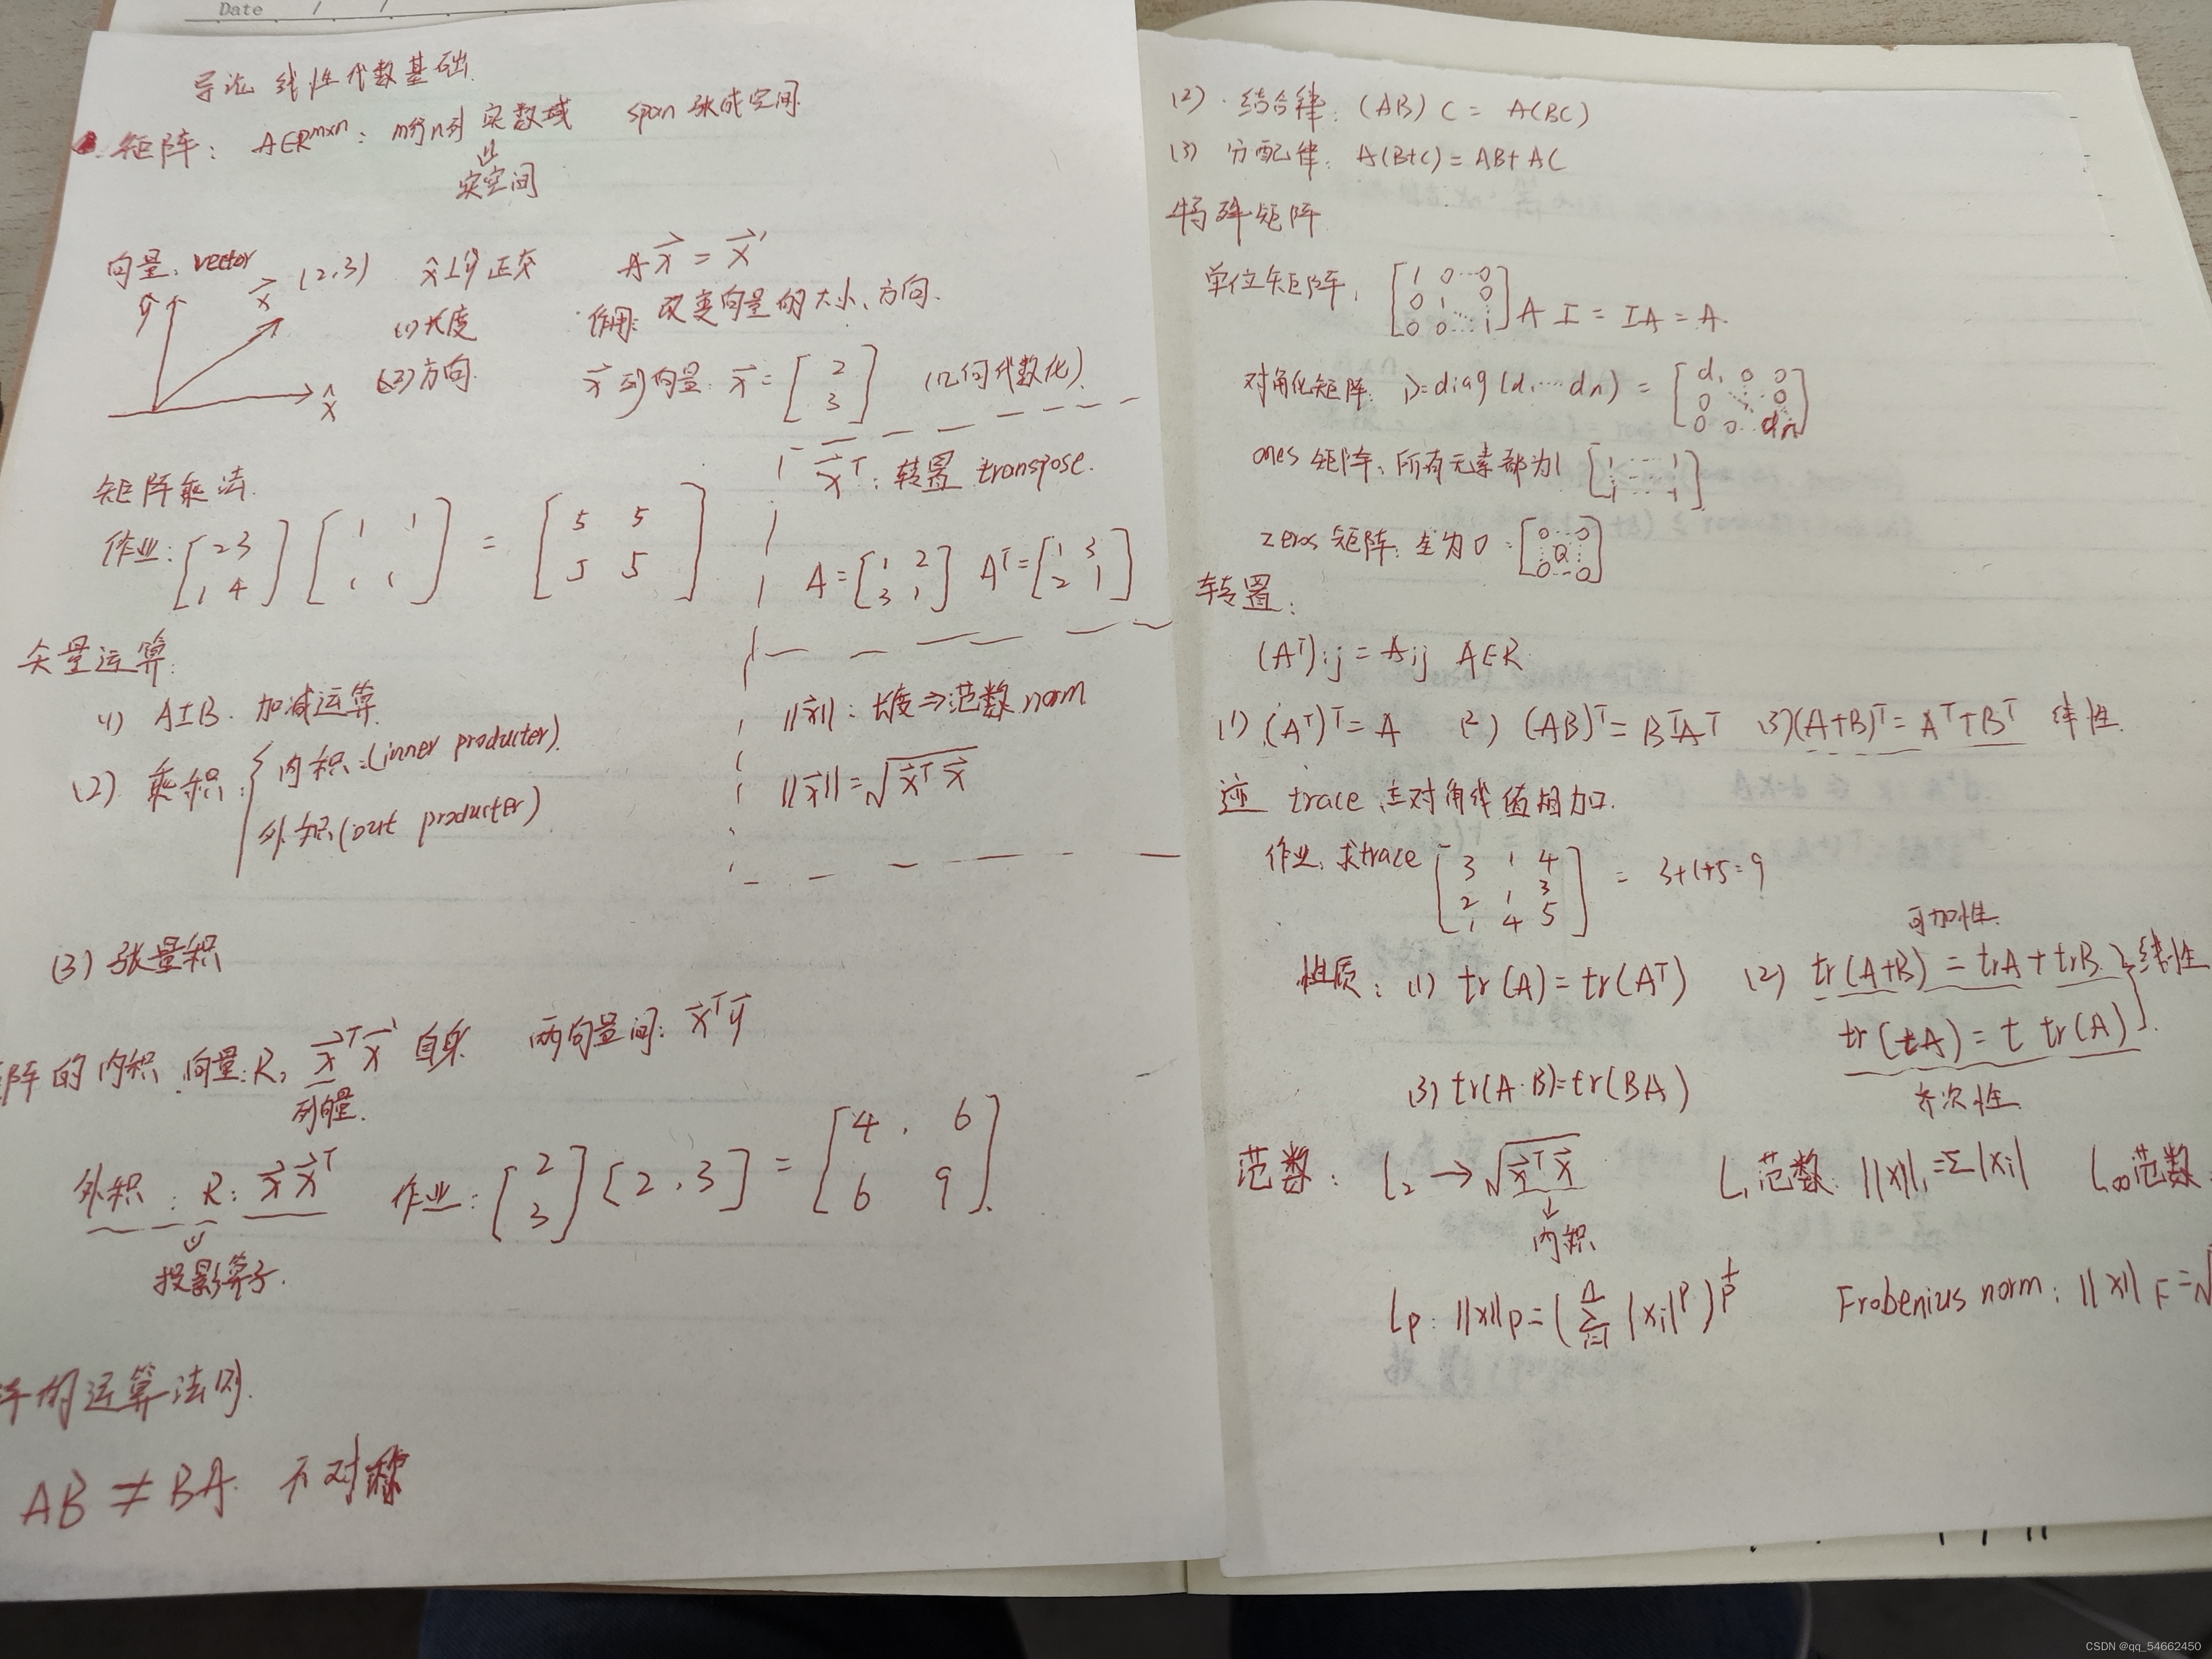 Date / /
导论 线性代数基础.
矩阵: A∈R^{m×n}: m行n列 实数域 span 张成空间
⇓
实空间
向量: vector x⃗ (2,3) x̂⊥ŷ 正交 Ax⃗ = x⃗'
ŷ (1) 长度 作用: 改变向量的大小、方向.
(2) 方向. x⃗ 列向量. x⃗ = [2; 3] (几何代数化).
x̂
x⃗^T: 转置 transpose.
A = [1 2; 3 1] A^T = [1 3; 2 1]
矩阵乘法.
作业: [2 3; 1 4] [1 1; 1 1] = [5 5; 5 5]
矢量运算:
(1) A±B. 加减运算
(2) 乘积: { 内积:(inner producter).
外积(out producter)
||x⃗||: 长度⇒范数 norm
||x⃗|| = √(x⃗^T x⃗)
(3) 张量积
阵的内积 向量:R, x⃗^T x⃗ 自身 两向量间: x⃗^T y⃗
列向量.
外积: R: x⃗x⃗^T 作业: [2; 3] [2,3] = [4, 6; 6 9].
⇓
投影算子.
的运算法则.
AB ≠ BA. 不对称
(2) 结合律: (AB)C = A(BC)
(3) 分配律: A(B+C) = AB+AC
特殊矩阵
单位矩阵: [1 0 ⋯ 0; 0 1 0; 0 0 ⋱ 1] AI = IA = A.
对角化矩阵: D=diag(d₁⋯dn) = [d₁ 0 0; 0 ⋱ 0; 0 0 dn]
ones 矩阵: 所有元素都为1 [1 ⋯ 1; 1 ⋯ 1]
zeros 矩阵: 全为0: [0 ⋯ 0; 0; 0 ⋯ 0]
转置:
(A^T)ij = Aij A∈R
(1) (A^T)^T = A (2) (AB)^T = B^T A^T (3) (A+B)^T = A^T + B^T 线性.
迹 trace 主对角线值相加.
作业: 求trace [3 1 4; 2 1 3; 1 4 5] = 3+1+5=9
可加性.
性质: (1) tr(A) = tr(A^T) (2) tr(A+B) = trA + trB. } 线性
tr(tA) = t tr(A)
(3) tr(A·B)=tr(BA) 齐次性.
范数: L₂ → √(x⃗^T x⃗) L₁范数: ||x||₁=Σ|xi| L∞范数.
↓
内积
Lp: ||x||p = (Σ_{i=1}^{n} |xi|^p)^{1/p} Frobenius norm: ||x||F = √
CSDN @qq_54662450